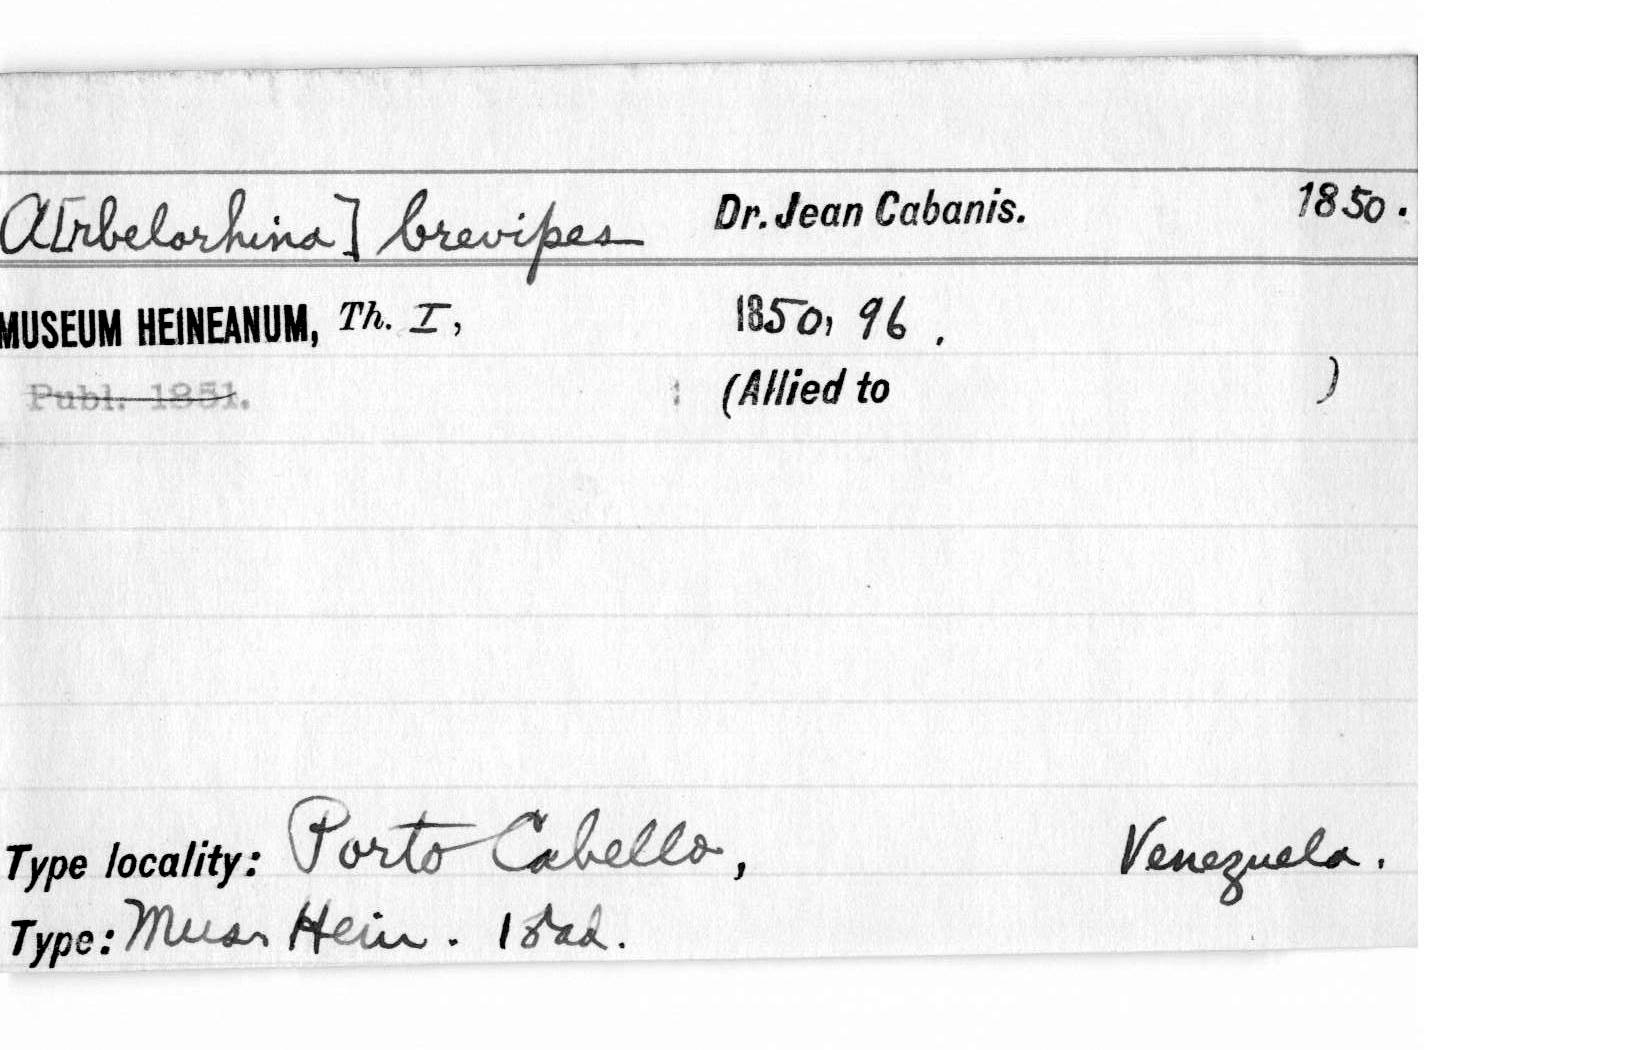 A[rbelorhina] brevipes Dr. Jean Cabanis. 1850.
MUSEUM HEINEANUM, Th. I, 1850, 96.
Publ. 1851. (Allied to )
Type locality: Porto Cabello, Venezuela.
Type: Mus. Hein. 1 ad.